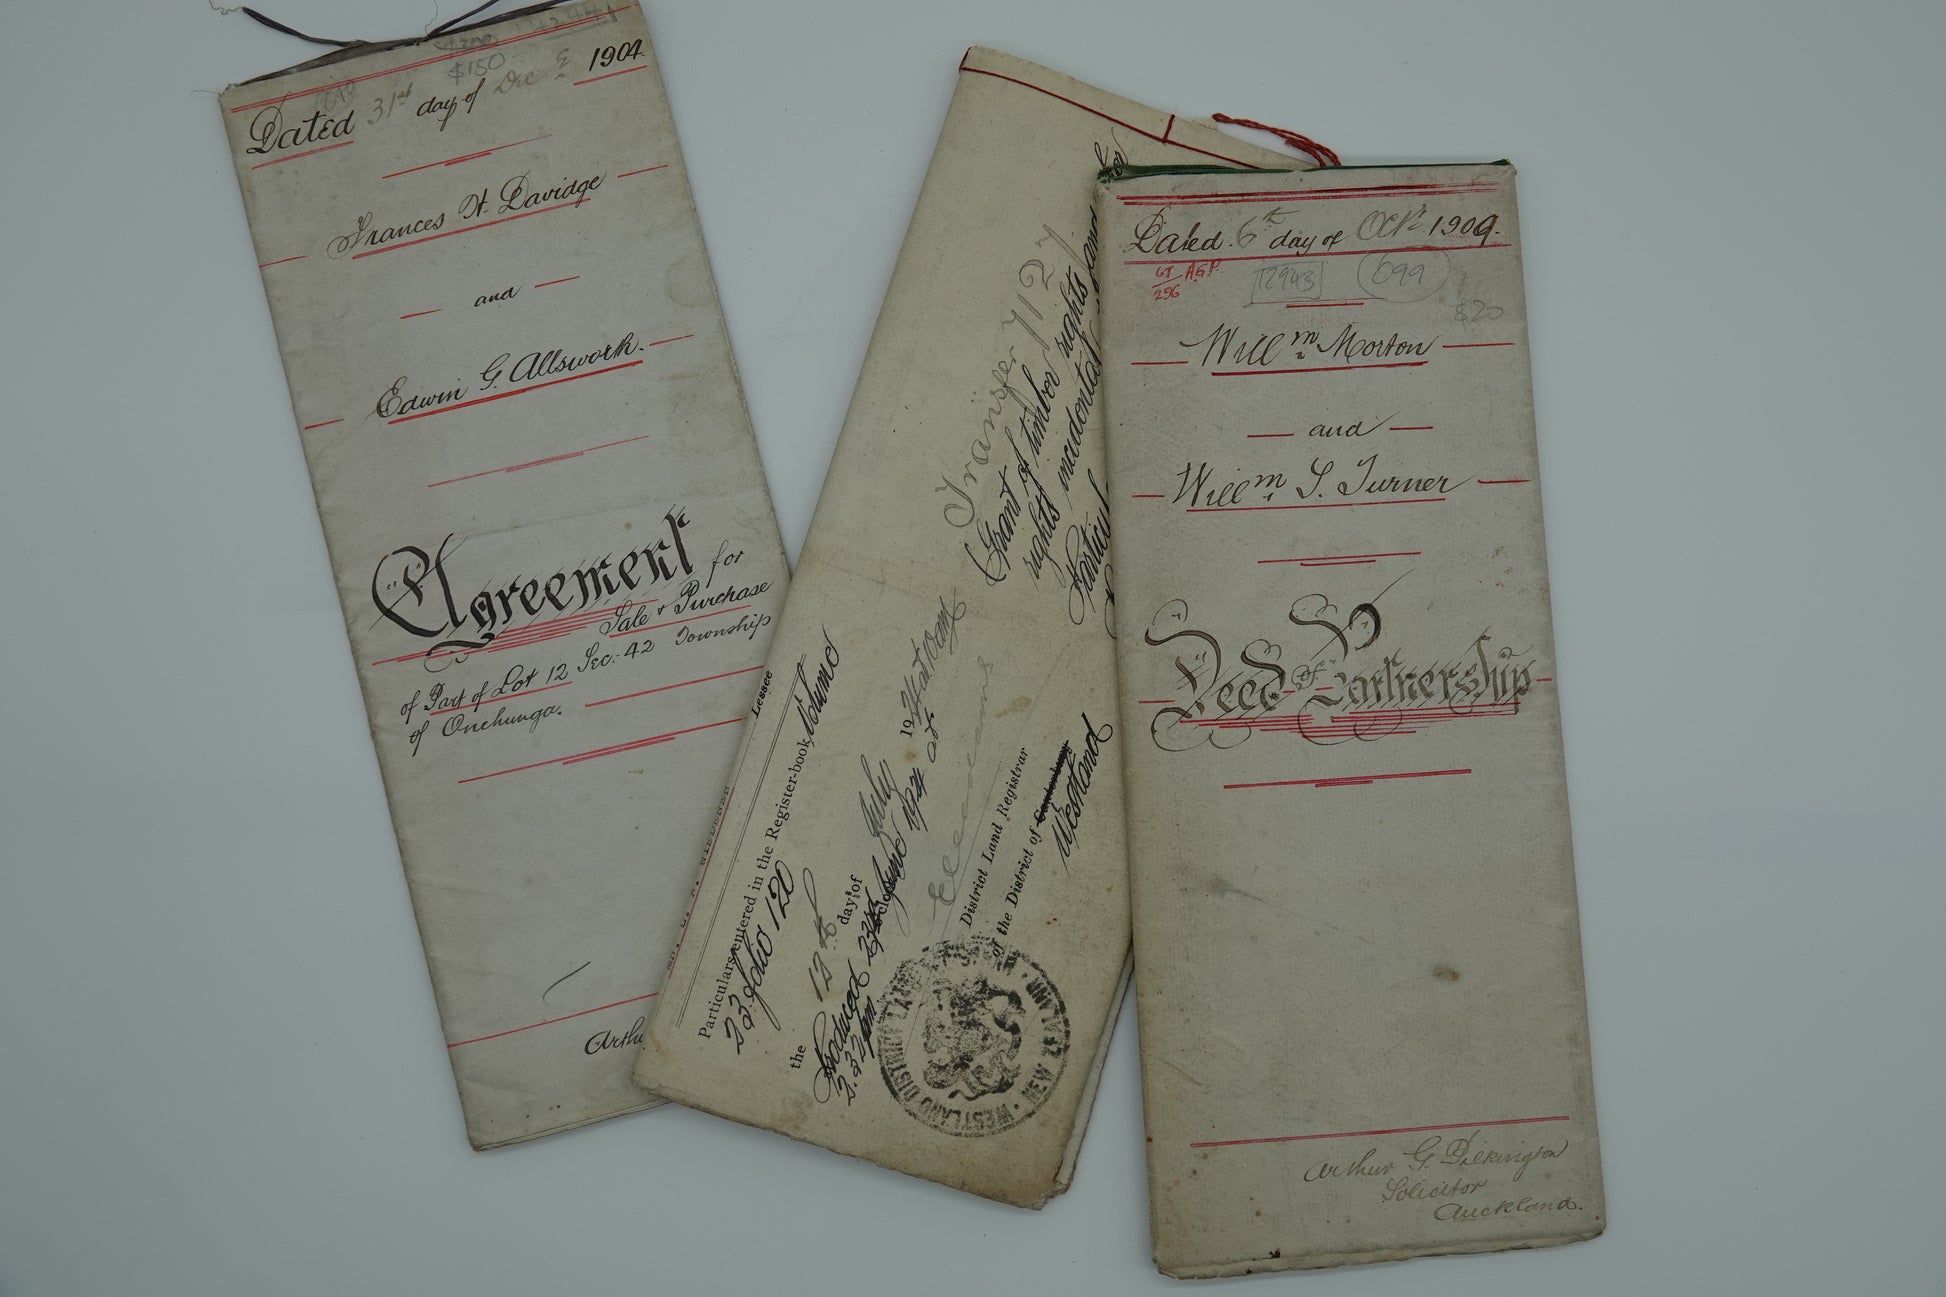 $150
Dated 31st day of Dec 1904
Frances H. Davidge
and
Edwin G. Allswork.
Agreement for
Sale & Purchase
of Part of Lot 12 Sec. 42 Township
of Onehunga.
Arthu
Transfer 7127
Grant of timber rights
rights incidental
and
Lessee
Particulars entered in the Register-book, Volume
23 folio 120
the 12th day of July 19
Produced
2.32 pm
1924 at
District Land Registrar
of the District of
Westland
WESTLAND DISTRICT LAND REGISTRY · NEW ZEALAND
Dated 6th day of Oct. 1909.
67 A.G.P.
296
12943
699
$20
Willm. Morton
and
Willm. S. Turner
Deed of Partnership
Arthur G. Pilkington
Solicitor
Auckland.